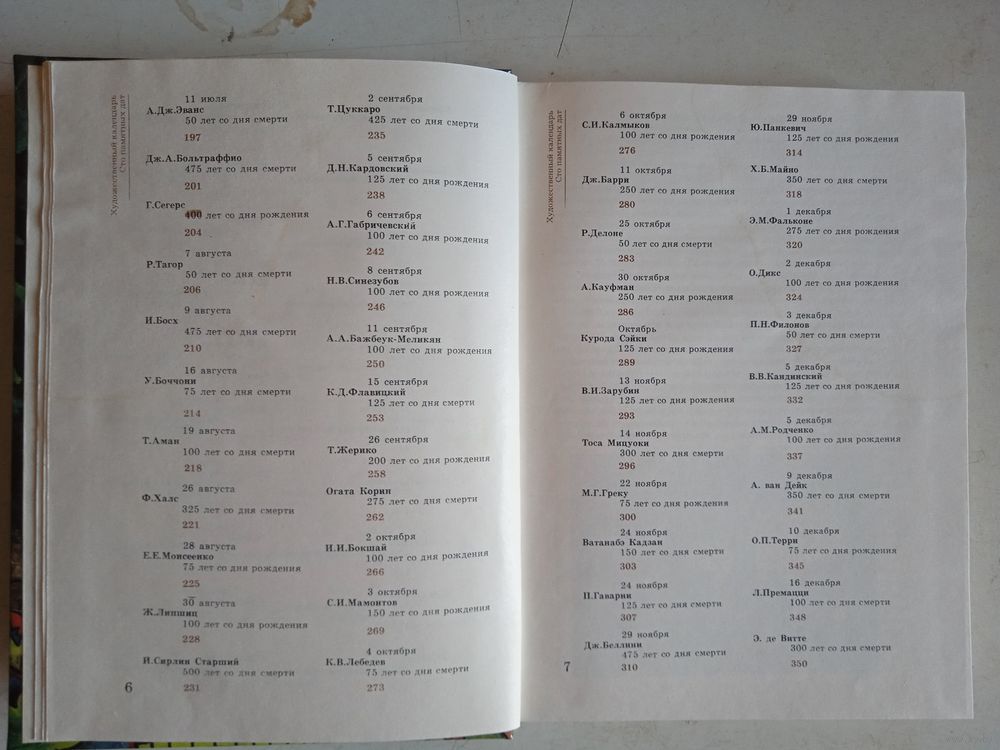 Художественный календарь
Сто памятных дат
11 июля
А.Дж.Эванс
50 лет со дня смерти
197
Дж.А.Больтраффио
475 лет со дня смерти
201
Г.Сегерс
400 лет со дня рождения
204
7 августа
Р.Тагор
50 лет со дня смерти
206
9 августа
И.Босх
475 лет со дня смерти
210
16 августа
У.Боччони
75 лет со дня смерти
214
19 августа
Т.Аман
100 лет со дня смерти
218
26 августа
Ф.Халс
325 лет со дня смерти
221
28 августа
Е.Е.Моисеенко
75 лет со дня рождения
225
30 августа
Ж.Липшиц
100 лет со дня рождения
228
И.Сирлин Старший
500 лет со дня смерти
231
2 сентября
Т.Цуккаро
425 лет со дня смерти
235
5 сентября
Д.Н.Кардовский
125 лет со дня рождения
238
6 сентября
А.Г.Габричевский
100 лет со дня рождения
242
8 сентября
Н.В.Синезубов
100 лет со дня рождения
246
11 сентября
А.А.Бажбеук-Меликян
100 лет со дня рождения
250
15 сентября
К.Д.Флавицкий
125 лет со дня смерти
253
26 сентября
Т.Жерико
200 лет со дня рождения
258
Огата Корин
275 лет со дня смерти
262
2 октября
И.И.Бокшай
100 лет со дня рождения
266
3 октября
С.И.Мамонтов
150 лет со дня рождения
269
4 октября
К.В.Лебедев
75 лет со дня смерти
273
6
Художественный календарь
Сто памятных дат
6 октября
С.И.Калмыков
100 лет со дня рождения
276
11 октября
Дж.Барри
250 лет со дня рождения
280
25 октября
Р.Делоне
50 лет со дня смерти
283
30 октября
А.Кауфман
250 лет со дня рождения
286
Октябрь
Курода Сэйки
125 лет со дня рождения
289
13 ноября
В.И.Зарубин
125 лет со дня рождения
293
14 ноября
Тоса Мицуоки
300 лет со дня смерти
296
22 ноября
М.Г.Греку
75 лет со дня рождения
300
24 ноября
Ватанабэ Кадзан
150 лет со дня смерти
303
24 ноября
П.Гаварни
125 лет со дня смерти
307
29 ноября
Дж.Беллини
475 лет со дня смерти
310
29 ноября
Ю.Панкевич
125 лет со дня рождения
314
Х.Б.Майно
350 лет со дня смерти
318
1 декабря
Э.М.Фальконе
275 лет со дня рождения
320
2 декабря
О.Дикс
100 лет со дня рождения
324
3 декабря
П.Н.Филонов
50 лет со дня смерти
327
5 декабря
В.В.Кандинский
125 лет со дня рождения
332
5 декабря
А.М.Родченко
100 лет со дня рождения
337
9 декабря
А. ван Дейк
350 лет со дня смерти
341
10 декабря
О.П.Терри
75 лет со дня рождения
345
16 декабря
Л.Премацци
100 лет со дня смерти
348
Э. де Витте
300 лет со дня смерти
350
7